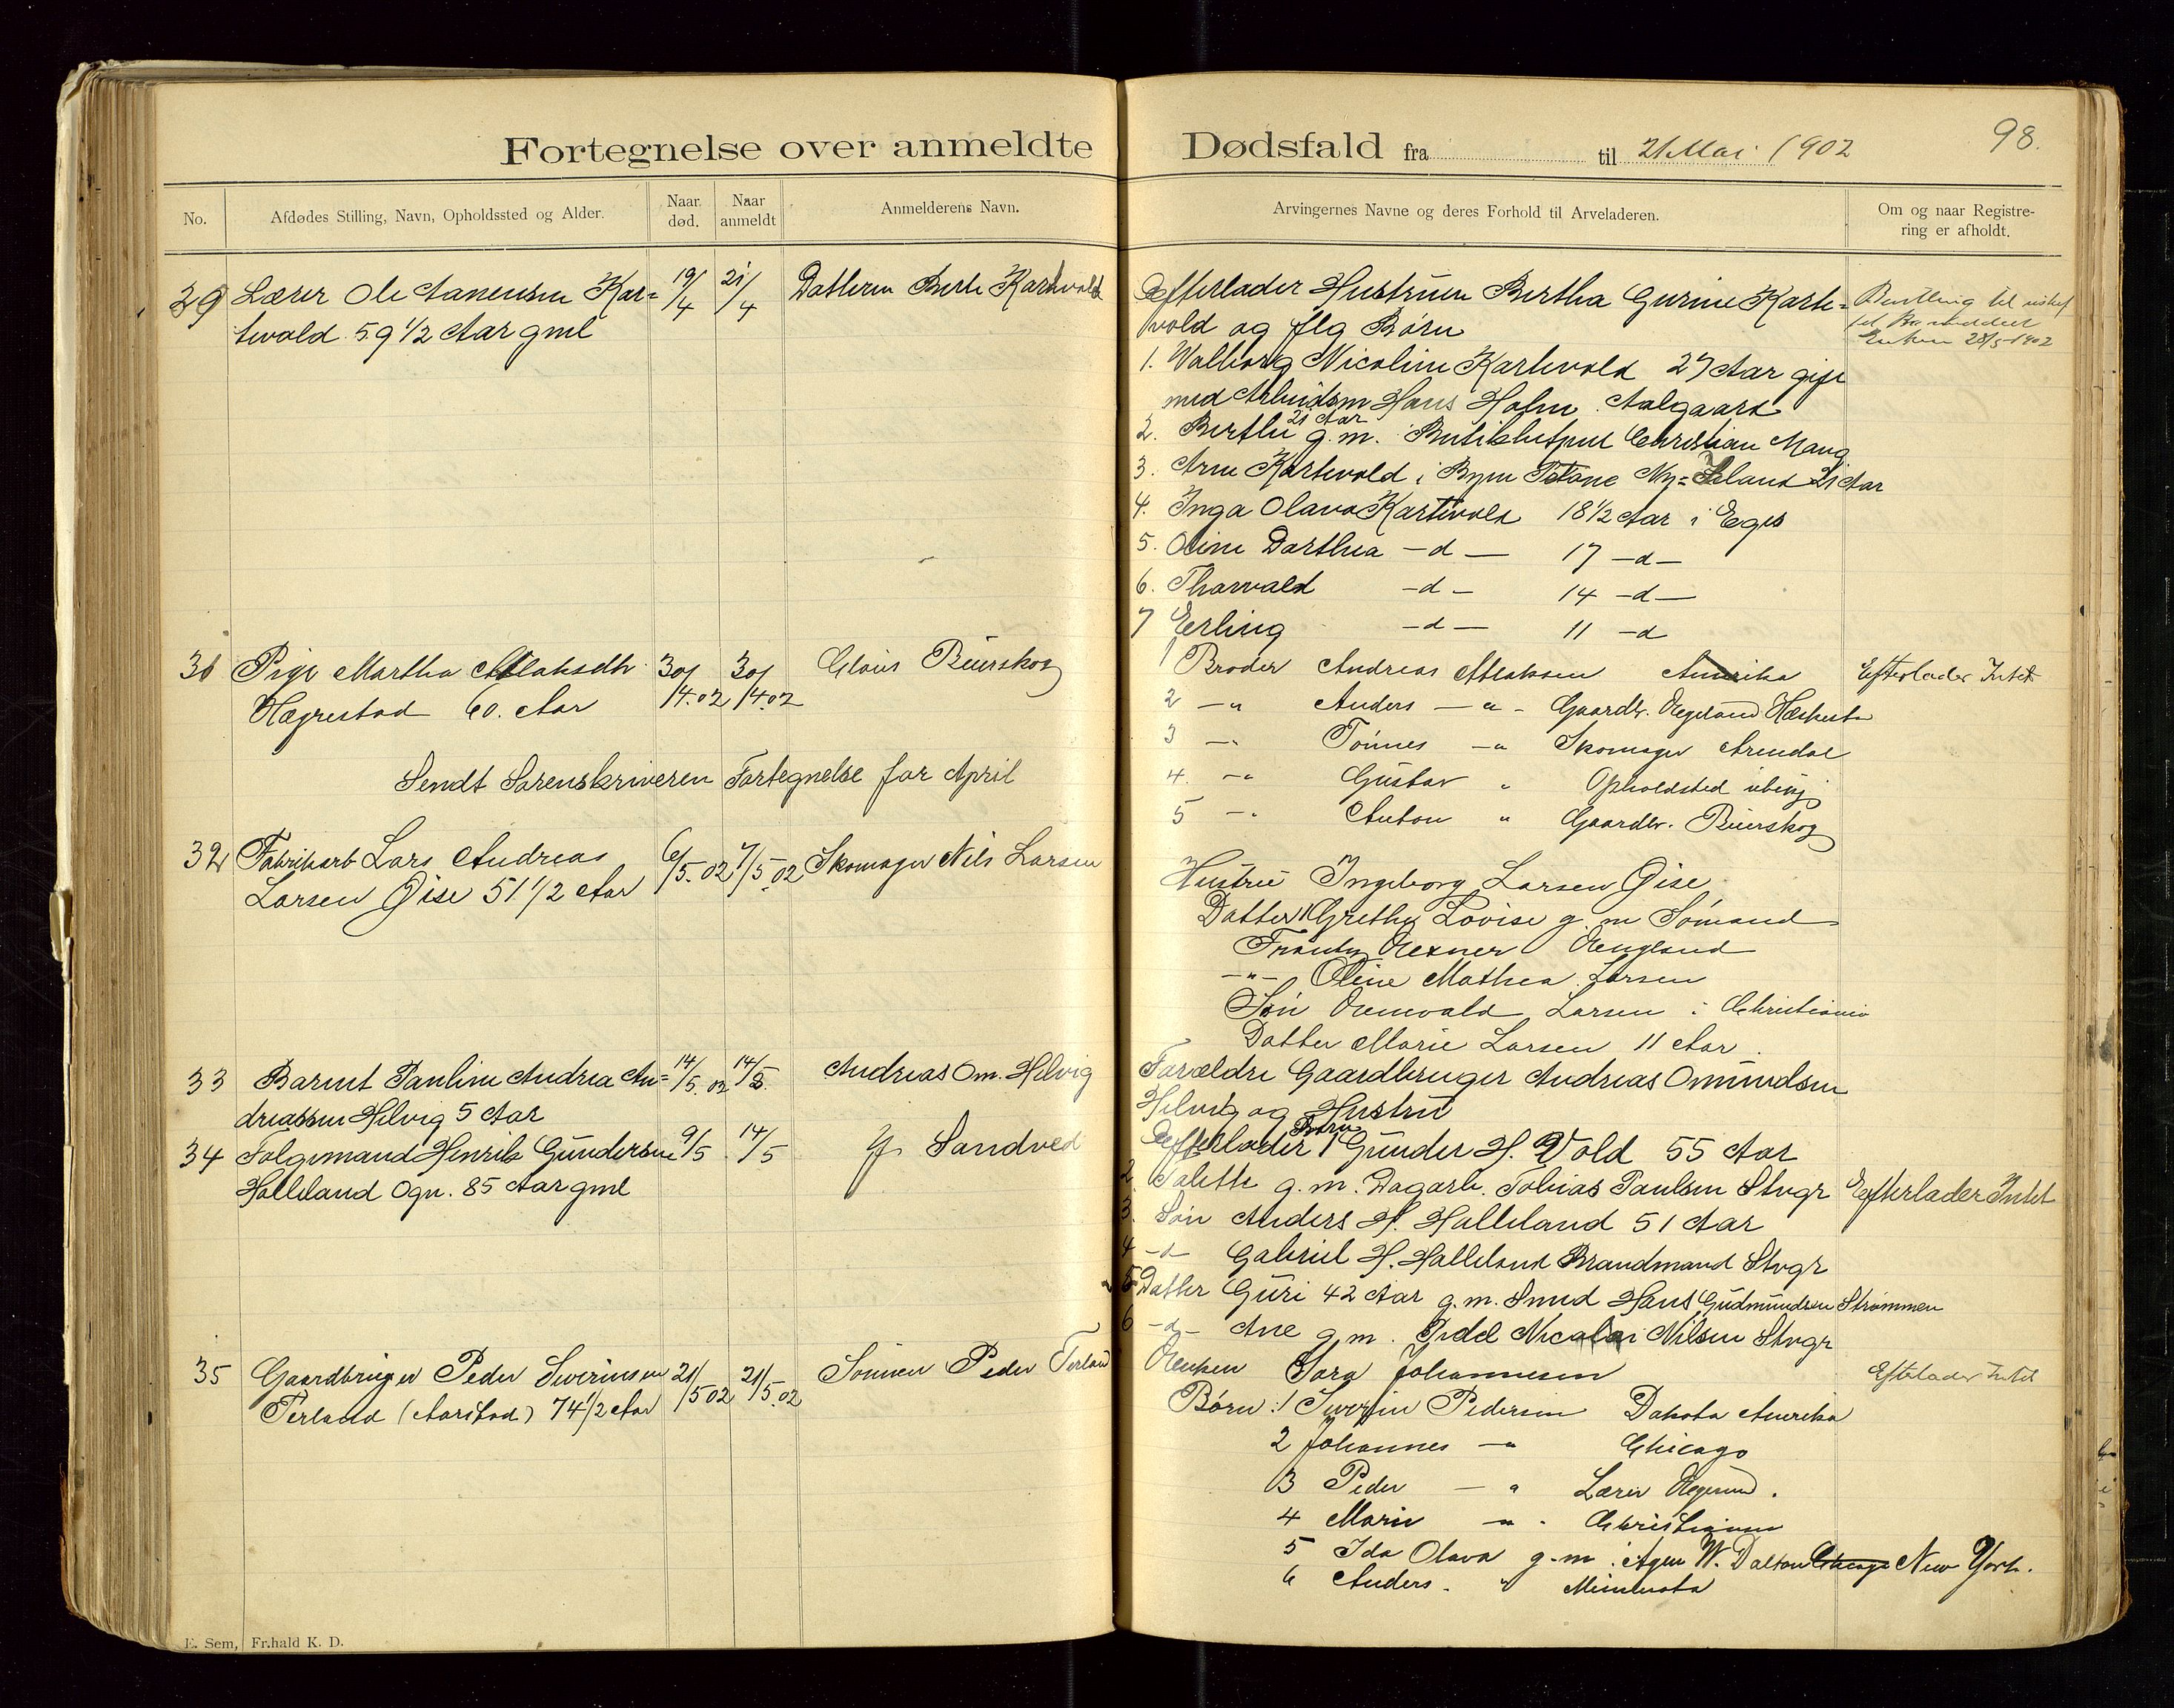 Fortegnelse over anmeldte Dødsfald fra til 21 Mai 1902
98.
No.
Afdødes Stilling, Navn, Opholdssted og Alder.
Naar død.
Naar anmeldt
Anmelderens Navn.
Arvingernes Navne og deres Forhold til Arveladeren.
Om og naar Registrering er afholdt.
29 Lærer Ole Aanensen Kar= 19/4 21/4 Datteren Berte Kartevold
tevold 59 1/2 Aar gml
Eefterlader Hustruen Bertha Gurine Karte=
vold og flg Børn
1. Walborg Nicoline Kartevold 27 Aar gift
med Arbeidsm Hans Hafn Aalgaard
2. Berthe 25 Aar g.m. Christian Mang
3. Arne Kartevold i Byen Petone Ny=Seland 21 Aar
4. Inga Olava Kartevold 18 1/2 Aar i Egs
5. Oline Dorthea -d- 17 -d-
6. Thorvald -d- 14 -d-
7 Eerling -d- 11 -d
Enken 28/5-1902
30 Pige Martha Atlaksdtr 30/4.02 30/4.02 Claus Buerskog
Hægrestad 60. Aar
1 Broder Andreas Atlaksen Amerika
2 -"- Anders -"- Gaardbr. Egeland Heskestad
3 -"- Tønnes -"- Skomager Arendal
4. -"- Gustav " Opholdsted ubevj
5 -"- Anton " Gaardbr. Buerskog
Efterlader Intet
Sendt Sorenskriveren Fortegnelse for April
32 Fabrikarb Lars Andreas 6/5.02 7/5.02 Skomager Nils Larsen
Larsen Gise 51 1/2 Aar
Hustru Ingeborg Larsen Gise
Datter 1 Grethe Lovise g. m Sømand
Exner England
-"- Oline Mathea Larsen
Søn Enevald Larsen i Christiania
Datter Marie Larsen 11 Aar.
33 Barnet Pauline Andrea An= 14/5.02 14/5. Andreas Om. Helvig
dreassen Helvig 5 Aar
Forældre Gaardbruger Andreas Omundsen
Helvig og Hustru
34 Folgemand Henrik Gundersen 9/5 14/5 Sandved
Halleland Ogn. 85 Aar gml
Eefterlader Børn 1 Gunder H. Vold 55 Aar
2. Talette g.m. Dagarb. Tobias Paulsen Stvgr
3. Søn Anders H. Halleland 51 Aar
4 -d- Gabriel H. Halleland Brandmand Stvgr
5 Datter Guri 42 Aar g.m. Smed Hans Gudmundsen Strømmen
6 -d- Ane g.m. Nicolai Nilsen Stvgr
Eefterlader Intet
35 Gaardbruger Peder Sverinsen 21/5 02 21/5.02 Sønnen Peder Terland
Terland (Aarstad) 74 1/2 Aar
Enken Sara Johannesen
Børn: 1 Sverin Pedersen Dakota Amerika
2 Johannes -"- Chicago
3 Peder -"- Lærer Egersund.
4 Marie -"- Christiania
5 Ida Olava g.m. Agen W. Dalton Chicago New York.
6 Anders. " Minnesota
Efterlader Intet
E. Sem, Fr.hald K. D.